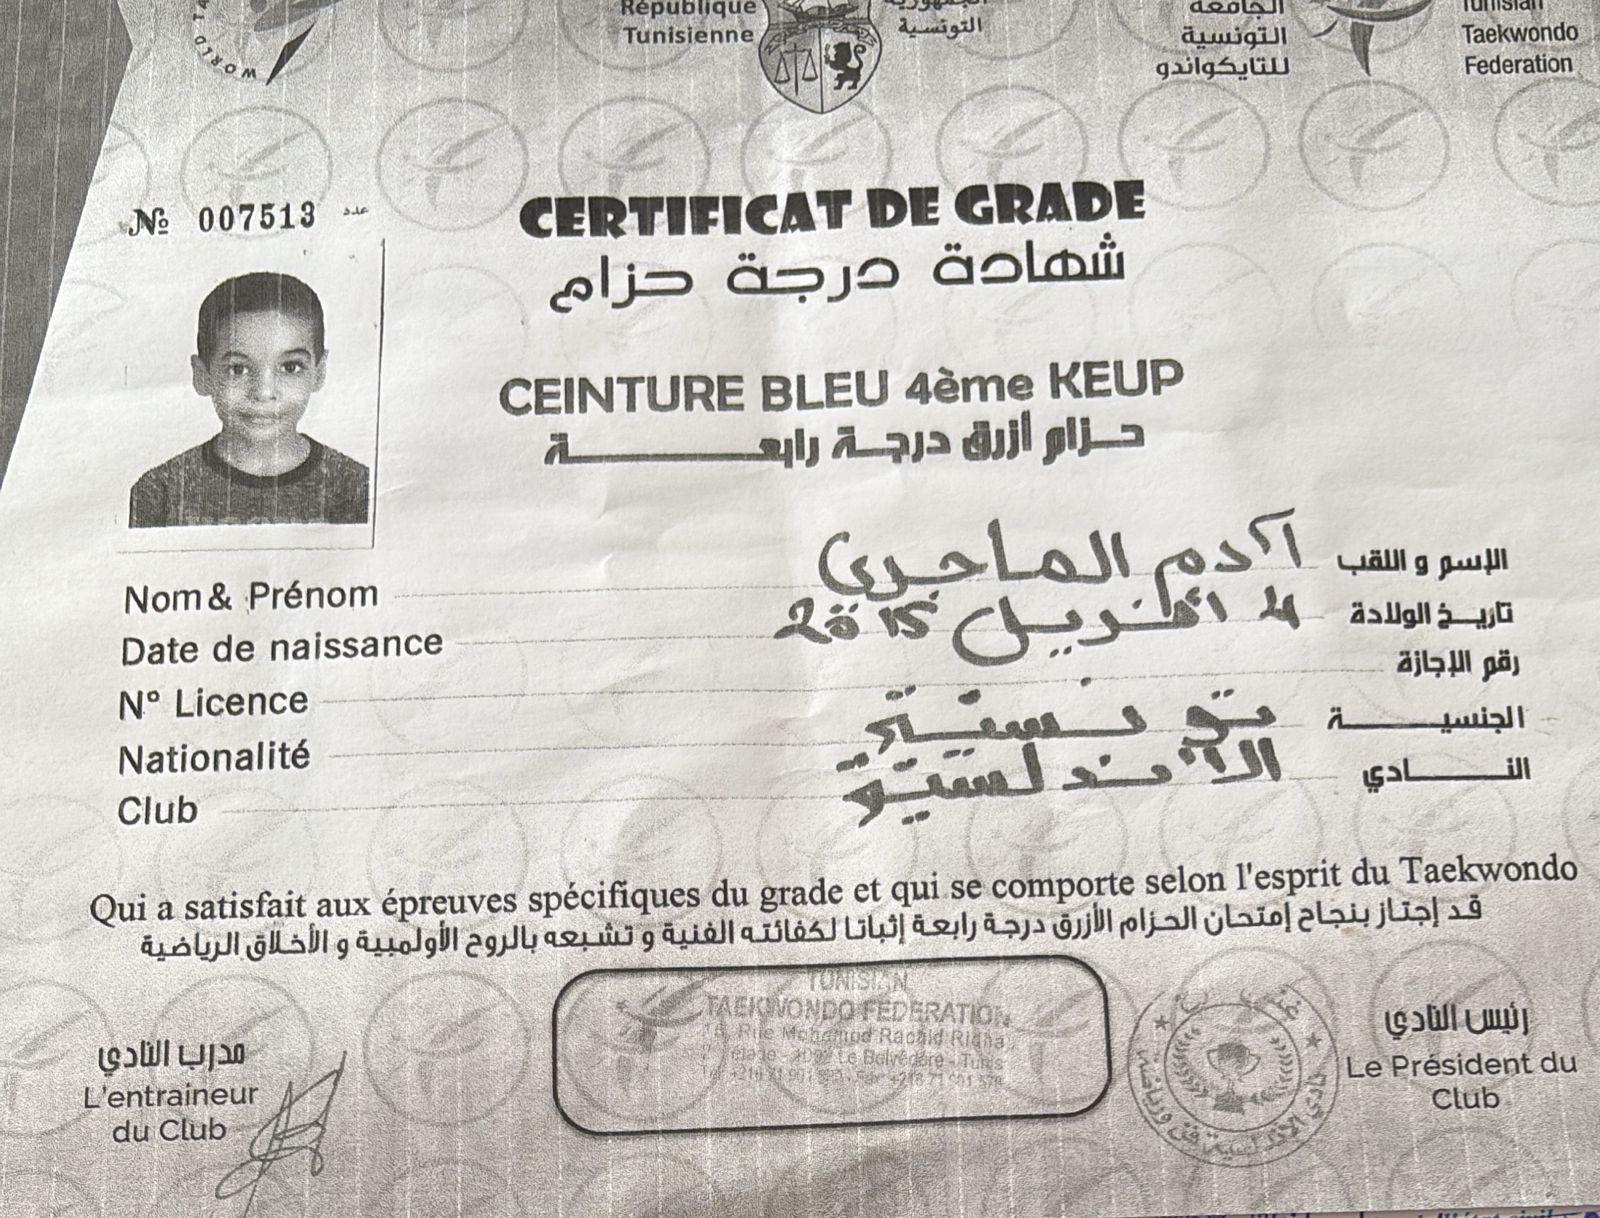 WORLD TA
République
Tunisienne
الجمهورية
التونسية
الجامعة
التونسية
للتايكواندو
Tunisian
Taekwondo
Federation
№ 007513 عدد
CERTIFICAT DE GRADE
شهادة درجة حزام
CEINTURE BLEU 4ème KEUP
حزام أزرق درجة رابعة
Nom & Prénom آدم الماجري الإسم و اللقب
Date de naissance 4 أفريل 2015 تاريخ الولادة
N° Licence رقم الإجازة
Nationalité تونسية الجنسية
Club الأندلسية النادي
Qui a satisfait aux épreuves spécifiques du grade et qui se comporte selon l'esprit du Taekwondo
قد إجتاز بنجاح إمتحان الحزام الأزرق درجة رابعة إثباتا لكفائته الفنية و تشبعه بالروح الأولمبية و الأخلاق الرياضية
مدرب النادي
L'entraineur
du Club
TUNISIAN
TAEKWONDO FEDERATION
Rue Mohamed Rachid Ridha
Le Belvédère - Tunis
رئيس النادي
Le Président du
Club
نادي الأندلسية فن ورياضة